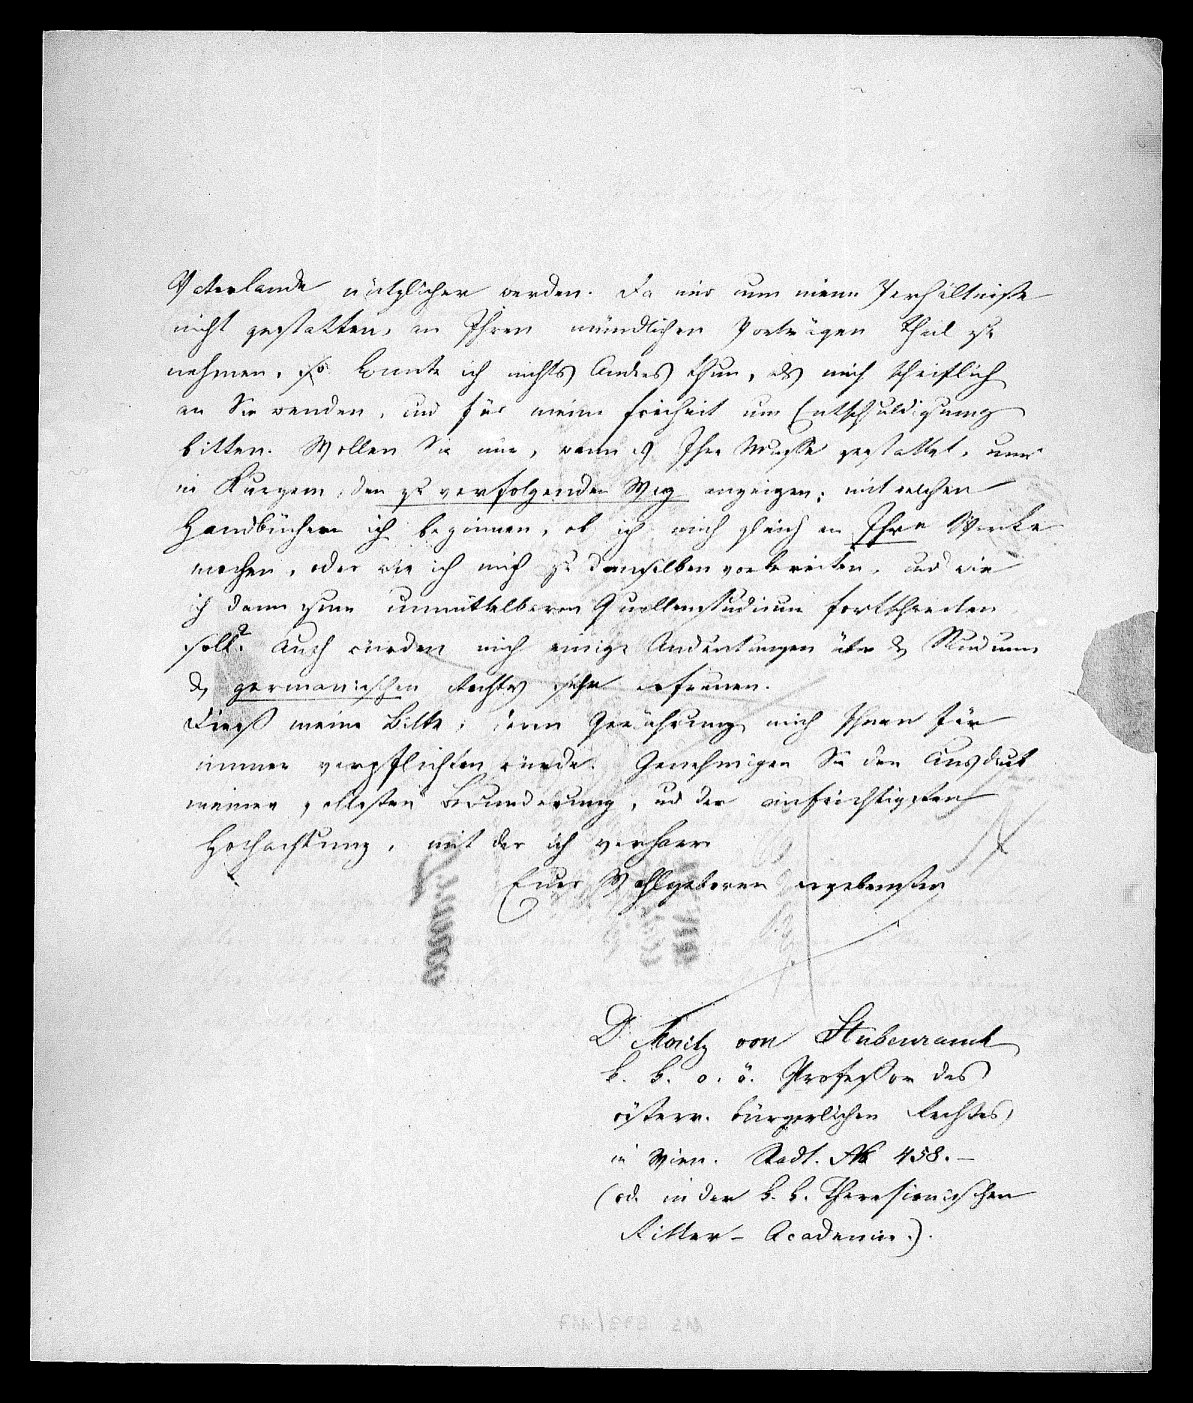 Vaterlande nützlicher werden. Da mir nun meine Verhältniße
nicht gestatten, an Ihren mündlichen Vorträgen Theil zu
nehmen, so konnte ich nichts Anders thun, als mich schriftlich
an Sie wenden, und für meine Freiheit um Entschuldigung
bitten. Wollen Sie mir, wenn es Ihre Muße gestattet, nur
in Kurzem, den zu verfolgenden Weg anzeigen; mit welchen
Handbüchern ich beginnen, ob ich mich gleich an Ihre Werke
machen, oder wie ich mich zu denselben vorbereiten, und wie
ich dann zum unmittelbaren Quellenstudium fortschreiten
soll? Auch würden mich einige Andeutungen über das Studium
des germanischen Rechtes sehr erfreuen.
Dieß meine Bitte, deren Gewährung mich Ihnen für
immer verpflichten würde. Genehmigen Sie den Ausdruk
meiner vollesten Bewunderung, und der aufrichtigsten
Hochachtung, mit der ich verharre
Euer Wohlgeboren ergebenster
Dr Moritz von Stubenrauch
k. k. o. ö. Profeßor des
österr. bürgerlichen Rechtes,
in Wien. Stadt. No 458.–
(od. in der k. k. Theresianischen
Ritter-Academie.).